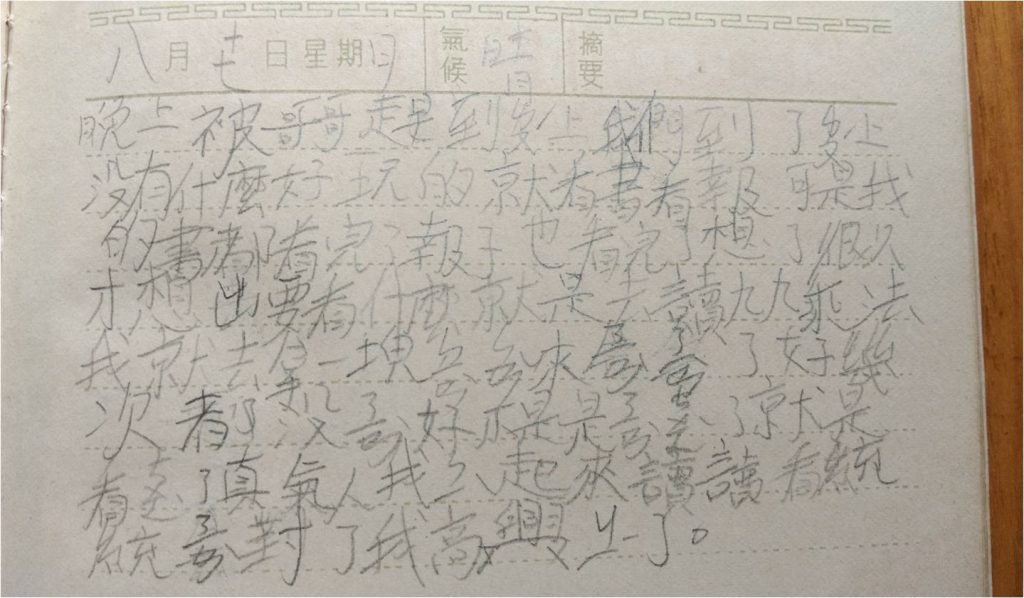 八月十七日星期日 氣候 晴 摘要
晚上被哥哥趕到樓上我們到了樓上
沒有什麼好玩的就看書看報可是我
的書都看完了報子也看完了想了很久
才想出要看什麼就是去讀九九乘法
我就去拿一塊 來寫寫了好幾
次都沒寫好不是 了就是
看 了真氣人我 起來讀讀看統
統寫對了我高興 了。